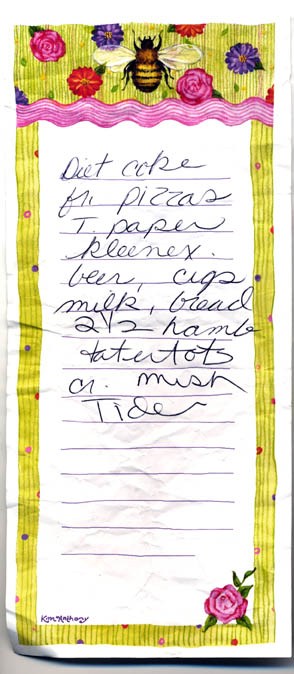 Diet coke
fr. pizzas
T. paper
kleenex.
beer, cigs
milk, bread
2 1/2 hamb
tatertots
cr. mush
Tide
Kim Anthony